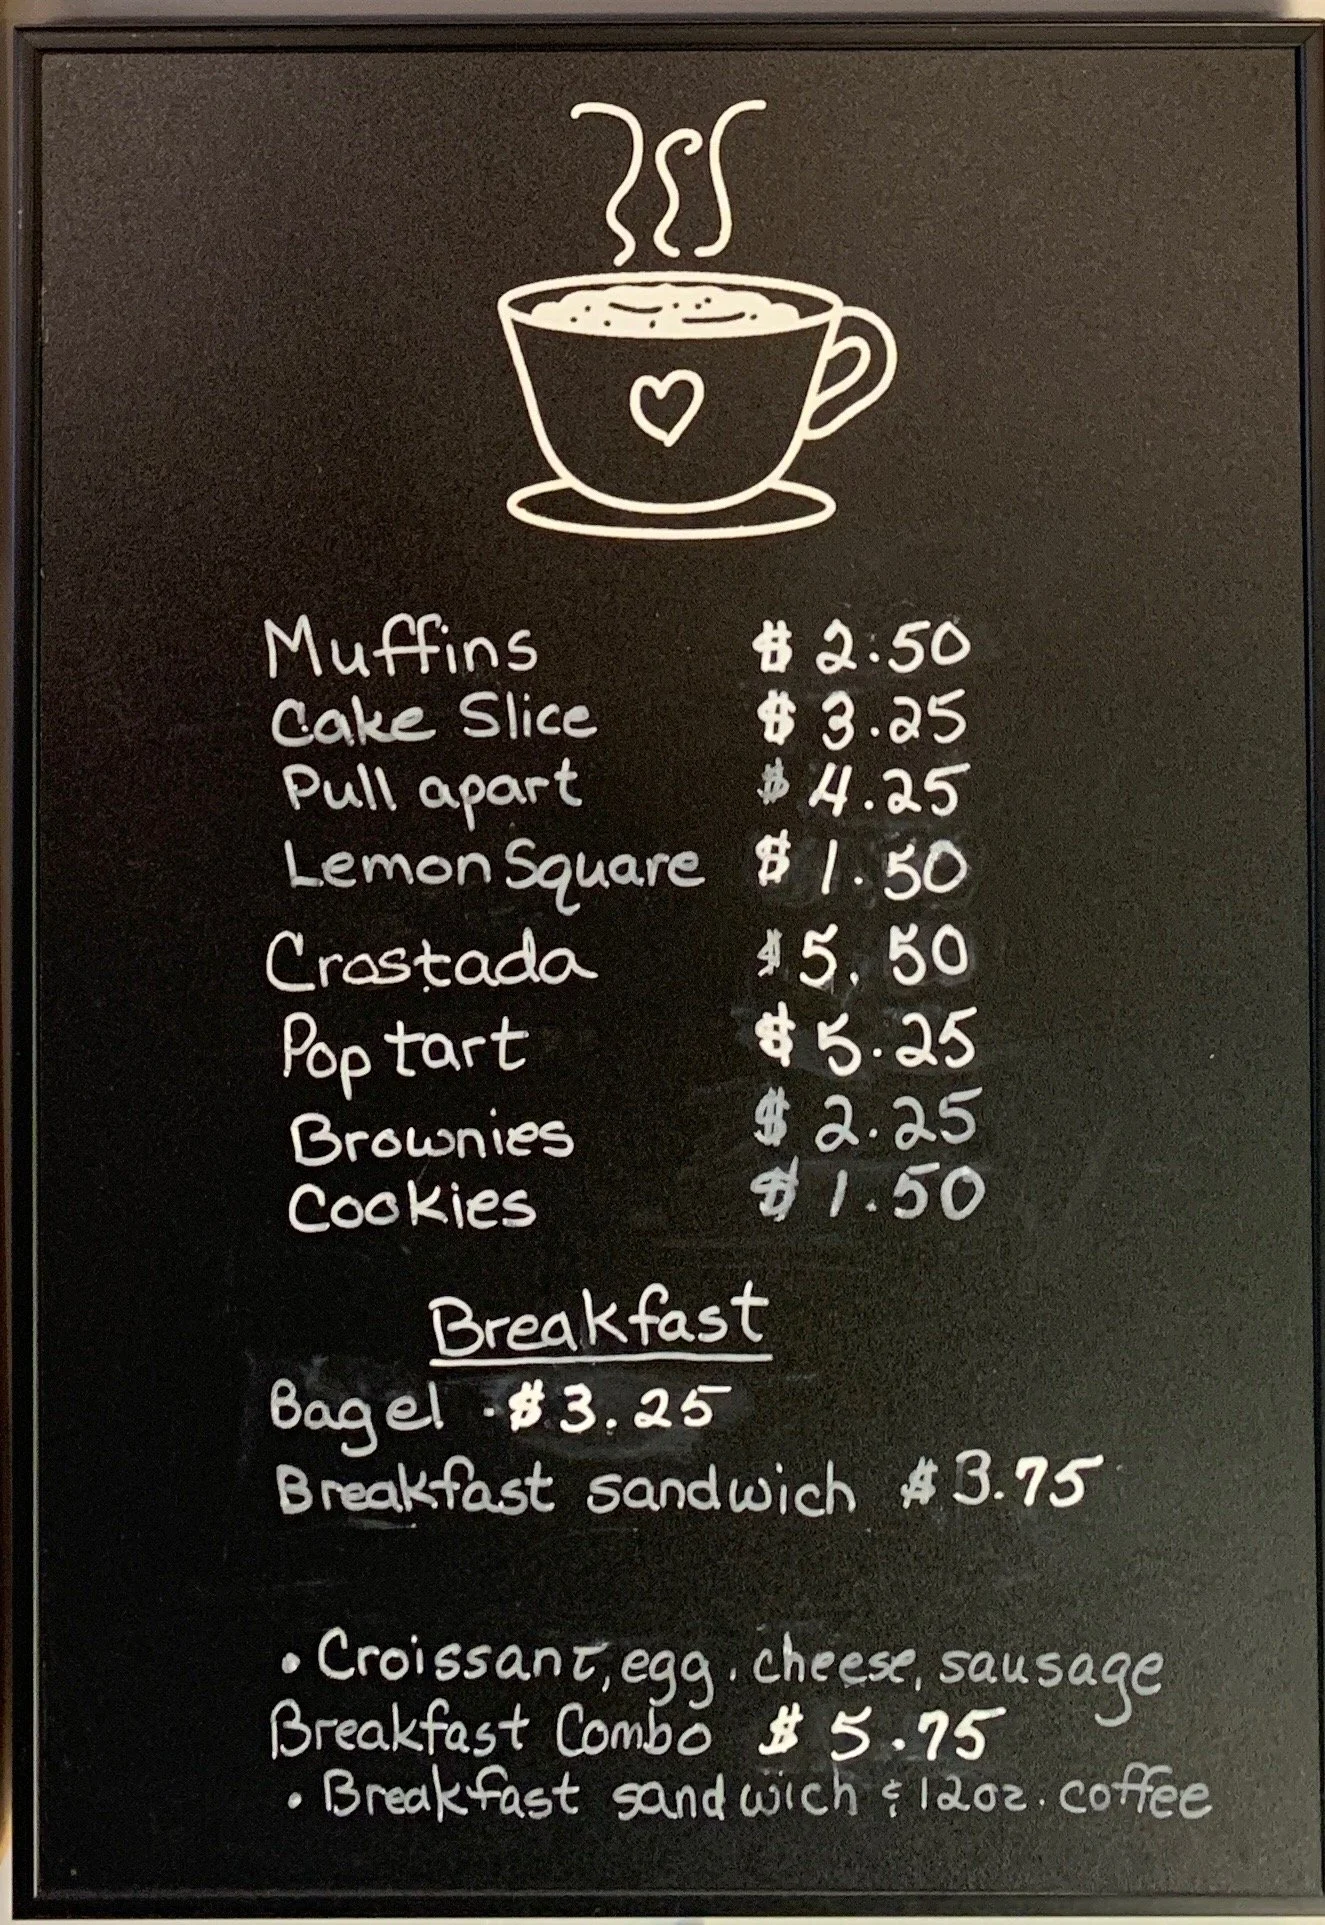 Muffins $2.50
Cake Slice $3.25
Pull apart $4.25
Lemon Square $1.50
Crostada $5.50
Pop tart $5.25
Brownies $2.25
Cookies $1.50
Breakfast
Bagel - $3.25
Breakfast sandwich $3.75
• Croissant, egg, cheese, sausage
Breakfast Combo $5.75
• Breakfast sandwich & 12oz. coffee